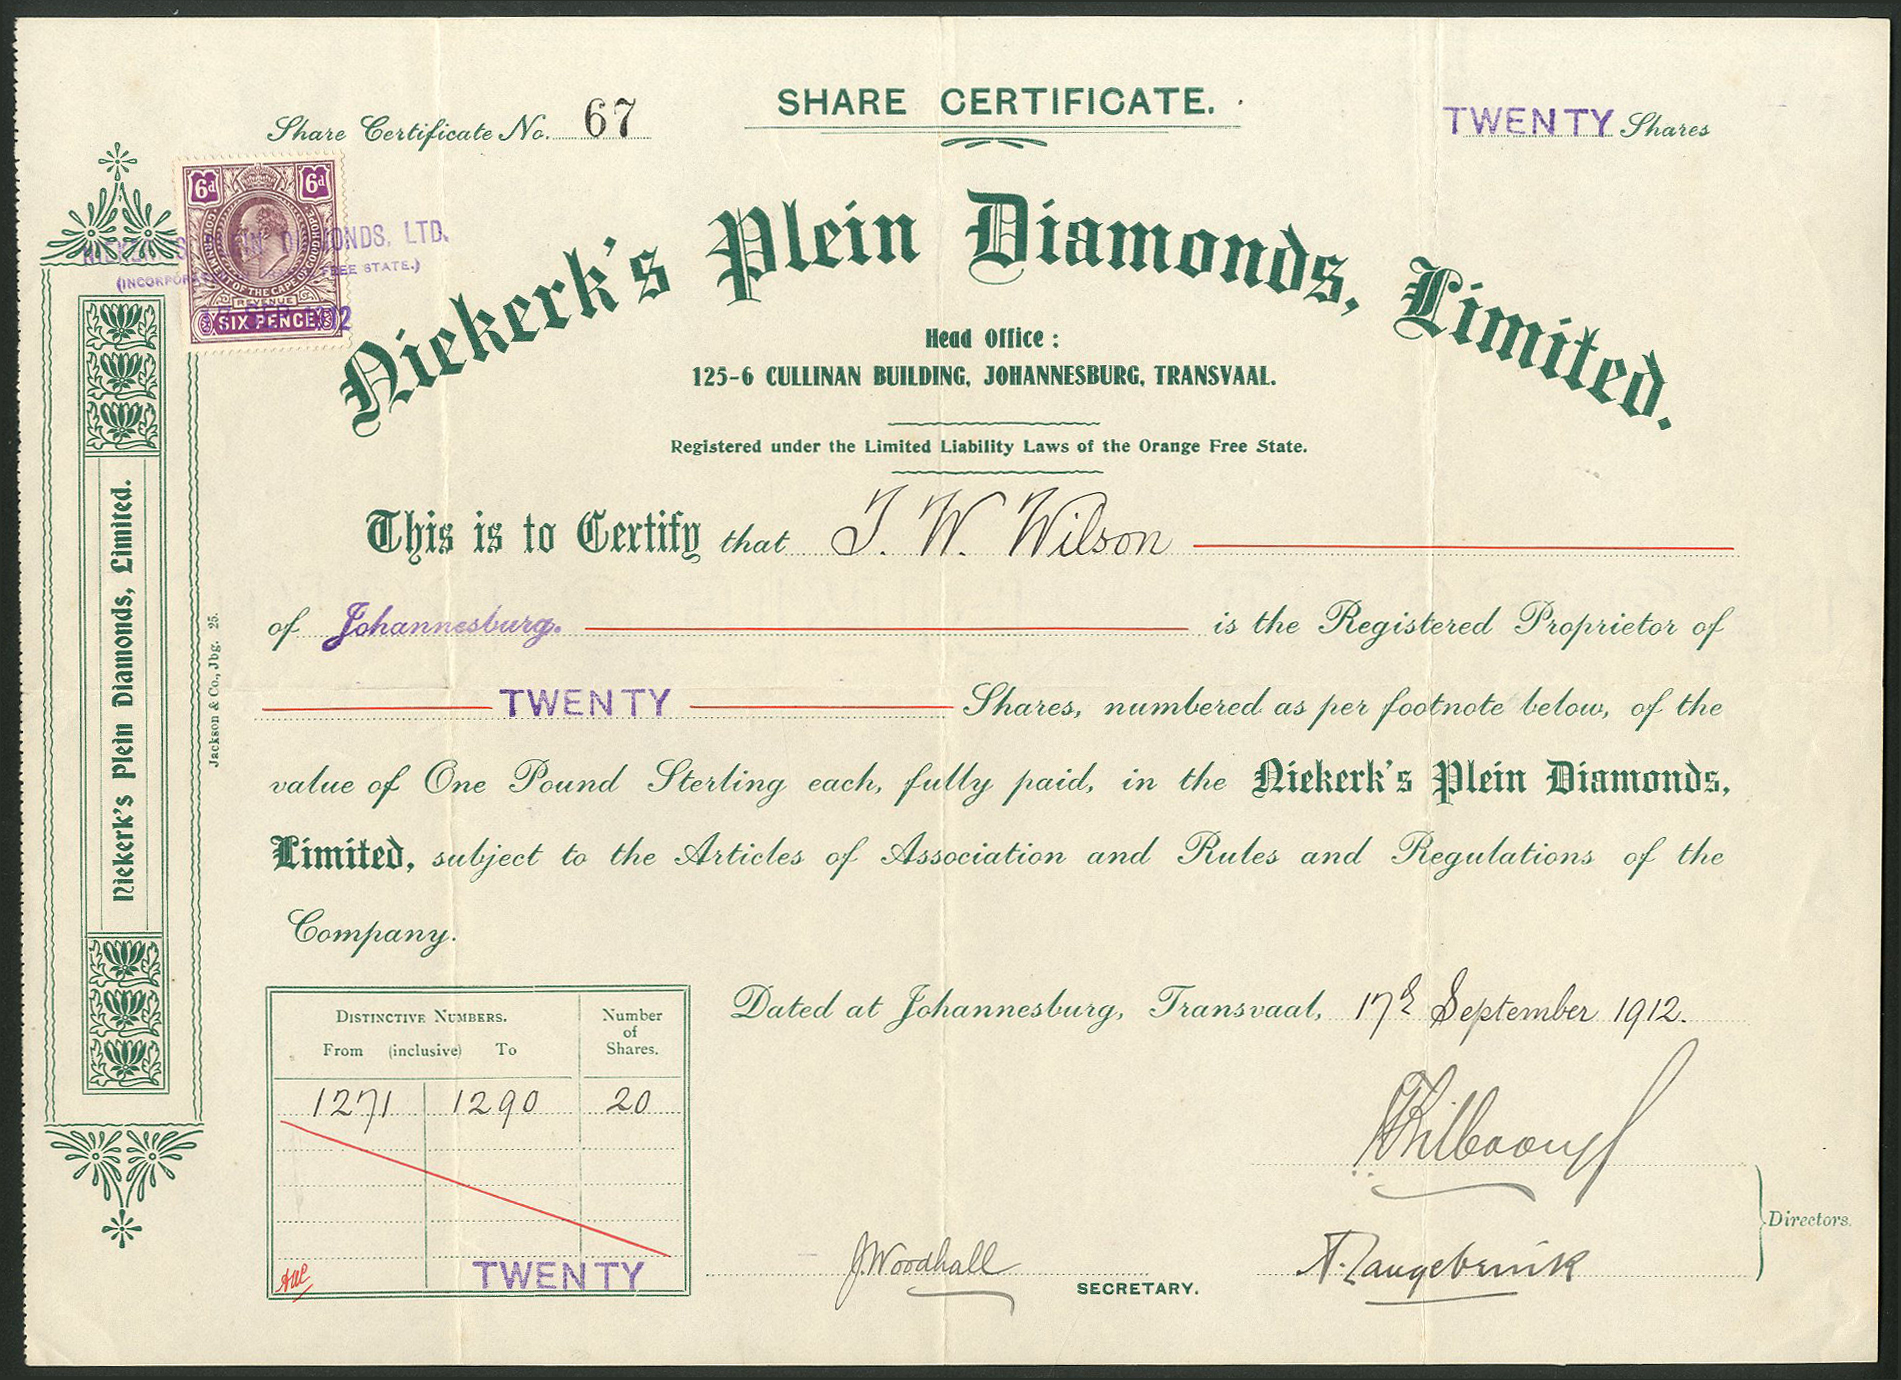 Share Certificate No. 67
SHARE CERTIFICATE.
TWENTY Shares
6d 6d
GOVERNMENT OF THE CAPE OF GOOD HOPE
REVENUE
SIX PENCE
DIAMONDS, LTD.
(INCORPORATED FREE STATE.)
Niekerk's Plein Diamonds, Limited.
Head Office :
125-6 CULLINAN BUILDING, JOHANNESBURG, TRANSVAAL.
Registered under the Limited Liability Laws of the Orange Free State.
This is to Certify that T. W. Wilson
of Johannesburg. is the Registered Proprietor of
TWENTY Shares, numbered as per footnote below, of the
value of One Pound Sterling each, fully paid, in the Niekerk's Plein Diamonds,
Limited, subject to the Articles of Association and Rules and Regulations of the
Company.
Niekerk's Plein Diamonds, Limited.
Jackson & Co., Jbg. 25.
Dated at Johannesburg, Transvaal, 17th September 1912.
DISTINCTIVE NUMBERS.
From (inclusive) To
Number
of
Shares.
1271 1290 20
TWENTY
J. Woodhall
SECRETARY.
Directors.